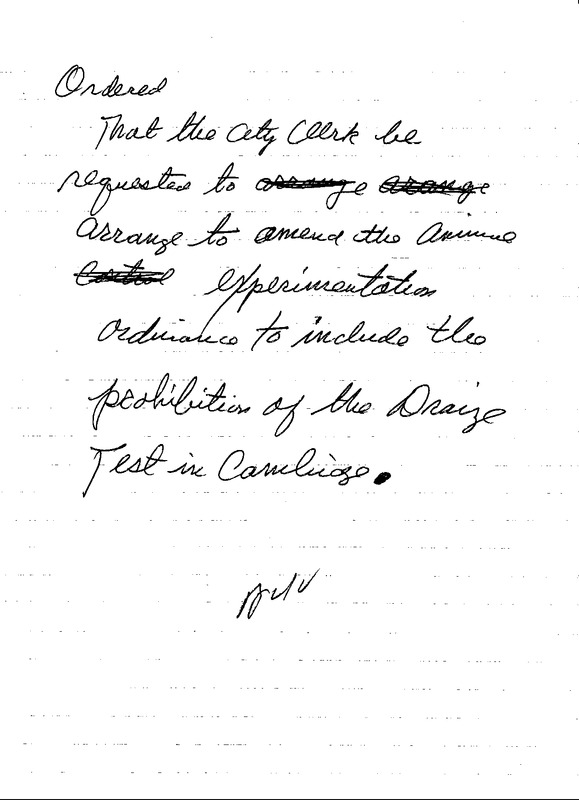 Ordered
That the City Clerk be
requested to arrange arange
arrange to amend the Animal
Control experimentation
ordinance to include the
prohibition of the Draize
Test in Cambridge.